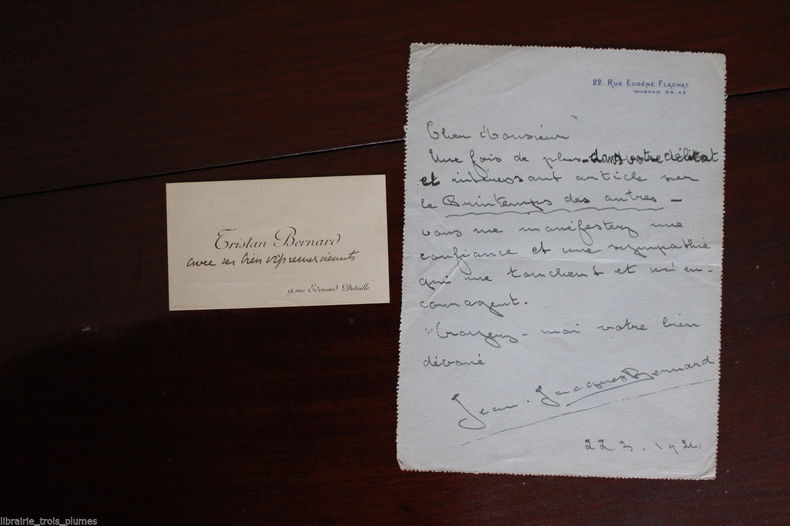 Tristan Bernard
avec ses bien vifs remerciements
9 rue Édouard Detaille
22. Rue Eugène Flachat
Wagram
Cher Monsieur
Une fois de plus dans votre délicat
et intéressant article sur
le Printemps des autres –
vous me manifestez une
confiance et une sympathie
qui me touchent et m'en-
couragent.
Croyez-moi votre bien
dévoué
Jean-Jacques Bernard
librairie_trois_plumes